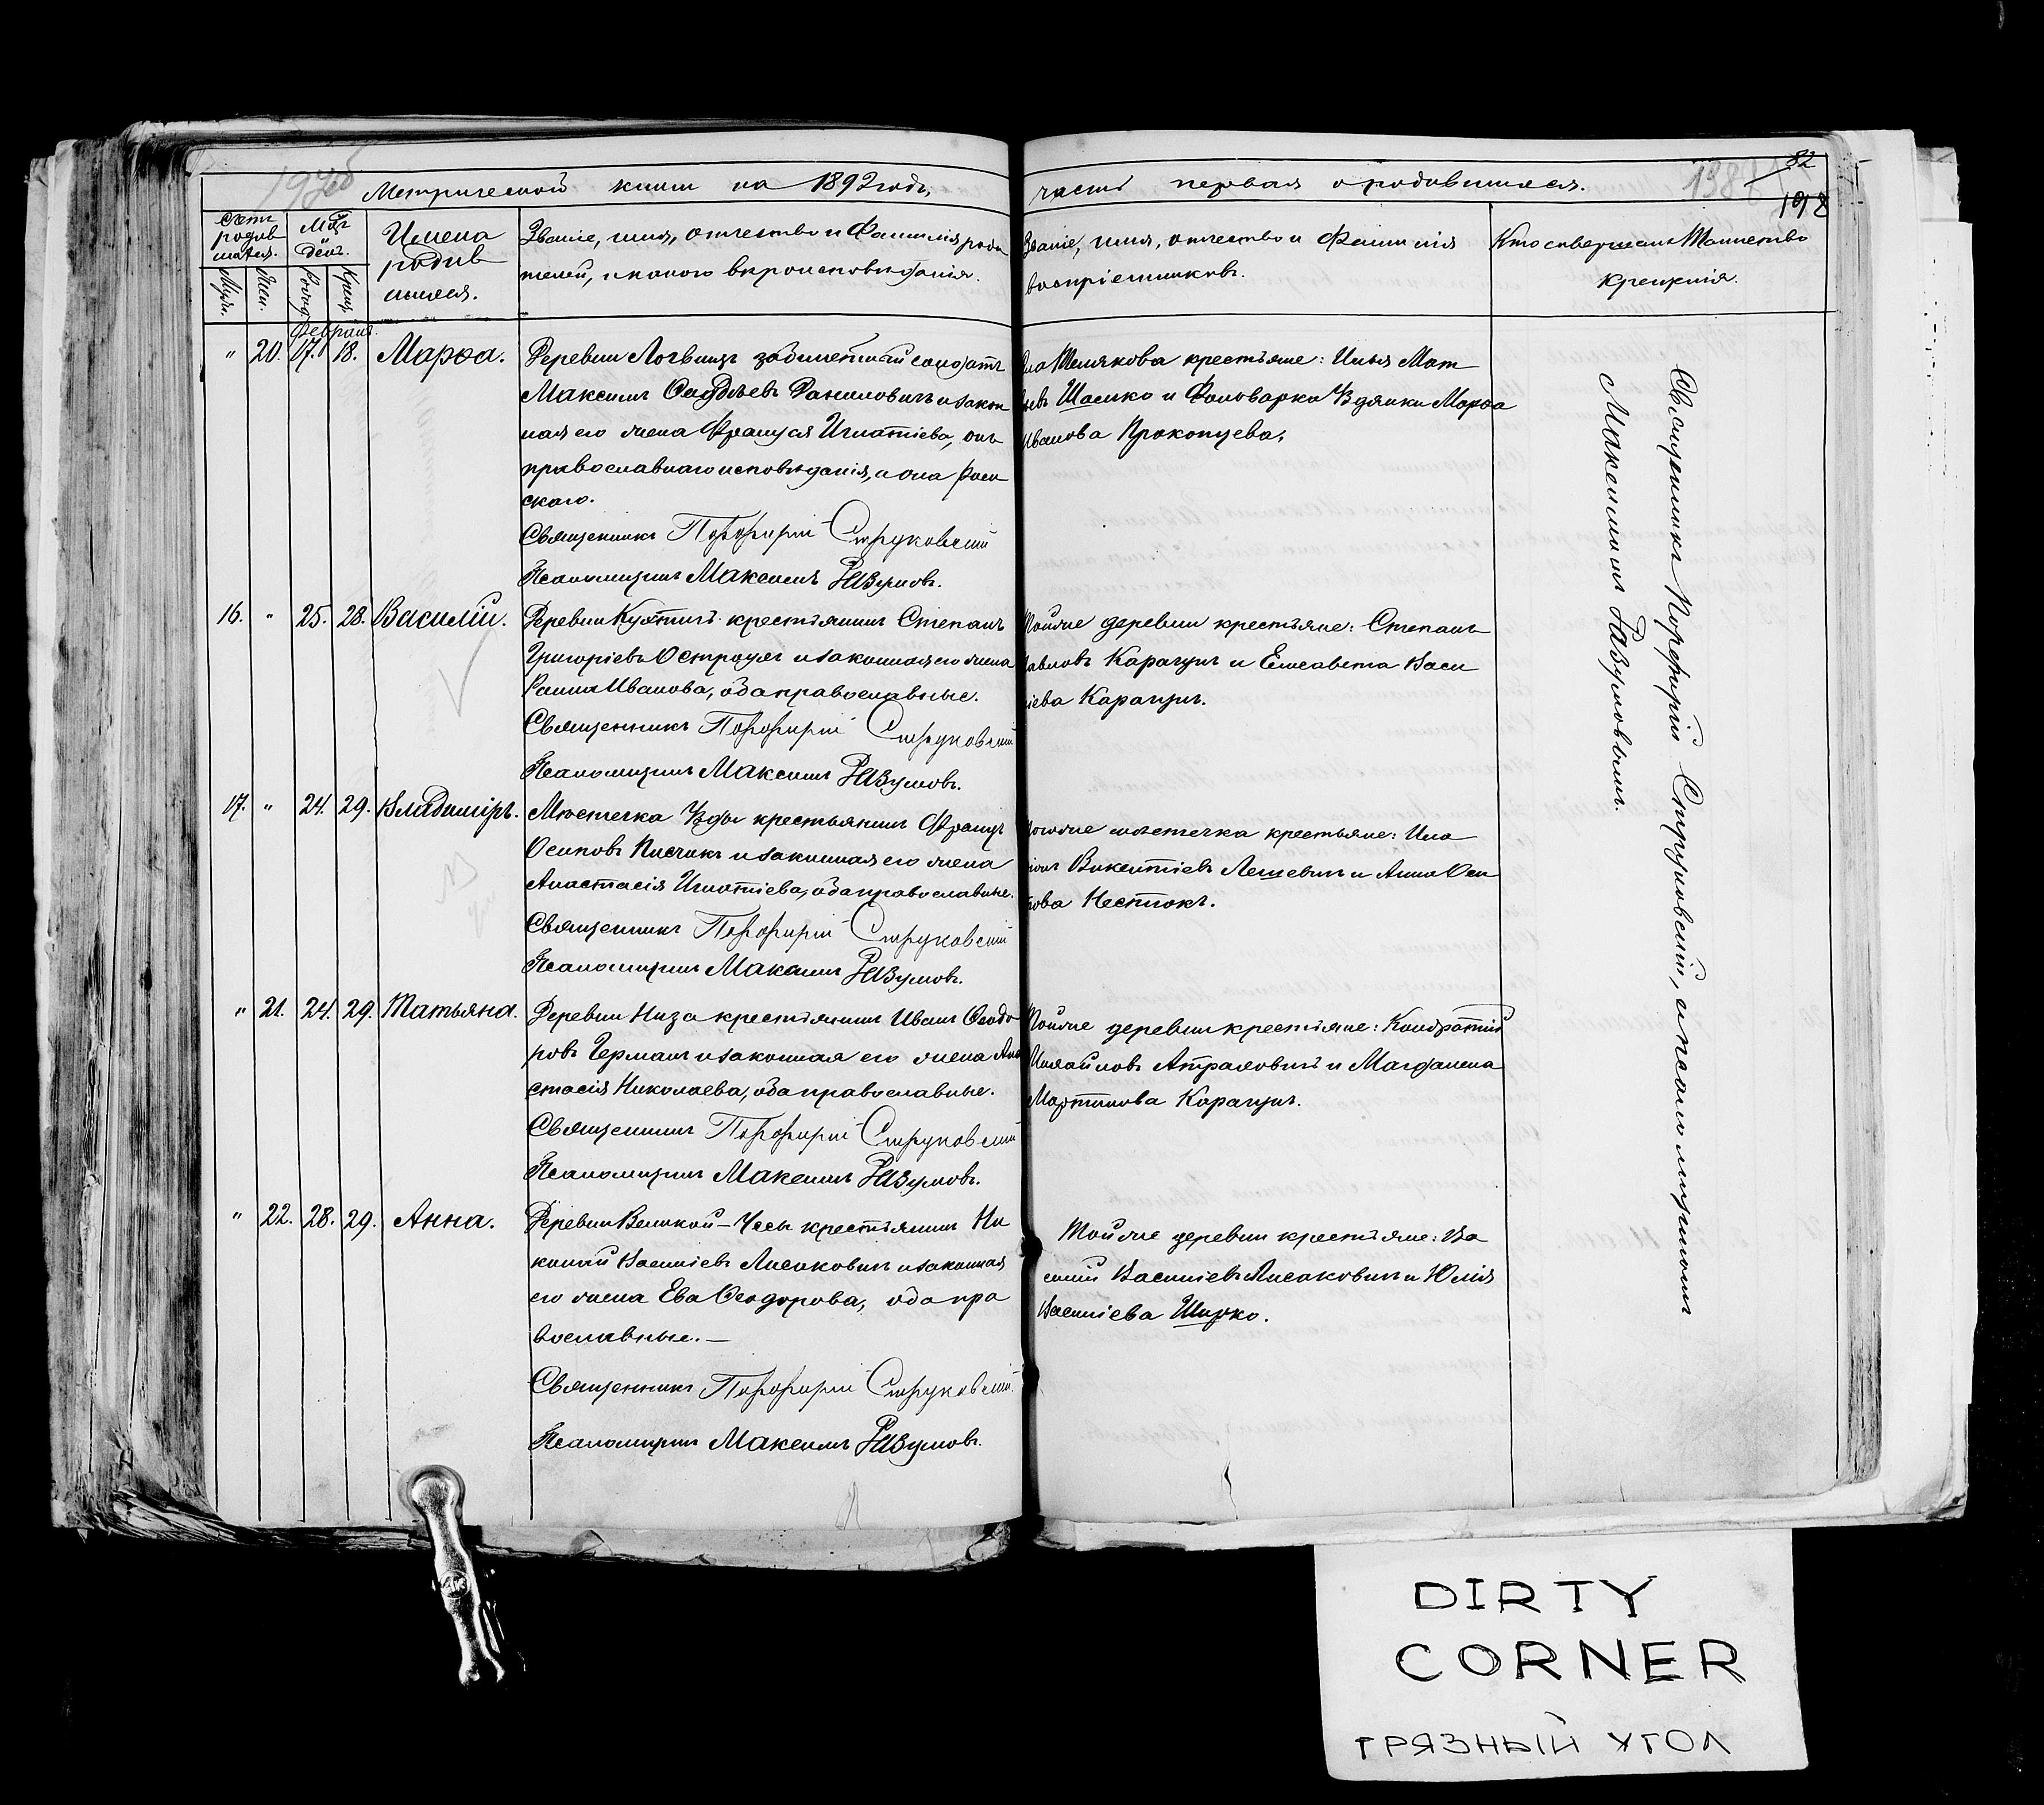 Метрической книги на 1892 годъ,
часть первая о родившихся.
82
198
Счетъ родив шихся.
Мѣц. День.
Имена родив шихся.
Званіе, имя, отчество и Фамилія роди
телей, и какого вѣроисповѣданія.
Званіе, имя, отчество и Фамилія
воспріемниковъ.
Кто совершалъ Таинство
крещенія.
Муж.
Жен.
Рожд.
Крещ.
Февраля
" 20. 17. 18. Марѳа.
Деревни Логвины
Максимъ Даниловичъ и закон
ная его жена Француся Игнатіева, онъ
православнаго исповѣданія, а она рим
скаго.
Священникъ Порфирій Струковскій
Псаломщикъ Максимъ Разумовъ.
крестьяне: Илья Мат
ѳеевъ Шашко и Фольварка Уздянки Марѳа
Иванова Прокопцева.
16. " 25. 28. Василій.
Деревни крестьянинъ Степанъ
Григоріевъ Остроухъ и законная его жена
Ивanova, оба православные.
Священникъ Порфирій Струковскій
Псаломщикъ Максимъ Разумовъ.
Той же деревни крестьяне: Степанъ
Павловъ Карачунъ и Елисавета Васи
ліева Карачунъ.
17. " 24. 29. Владиміръ.
Мѣстечка Узды крестьянинъ Францъ
Осиповъ Писчикъ и законная его жена
Анастасія Игнатіева, оба православные.
Священникъ Порфирій Струковскій
Псаломщикъ Максимъ Разумовъ.
Того же мѣстечка крестьяне:
Викентіевъ Лешевичъ и Анна Оси
пова Нестюкъ.
" 21. 24. 29. Татьяна.
Деревни Низа крестьянинъ Иванъ Ѳеодо
ровъ Германъ и законная его жена Ана
стасія Николаева, оба православные.
Священникъ Порфирій Струковскій
Псаломщикъ Максимъ Разумовъ.
Той же деревни крестьяне: Кондратій
Михайловъ Атраховичъ и Магдалена
Мартинова Карачунъ.
" 22. 28. 29. Анна.
Деревни Великой-Усы крестьянинъ Ни
колай Василіевъ Лисаковичъ и законная
его жена Ева Ѳеодорова, оба пра
вославные.—
Священникъ Порфирій Струковскій
Псаломщикъ Максимъ Разумовъ.
Той же деревни крестьяне: Ва
силій Василіевъ Лисаковичъ и Юлія
Василіева Ширко.
Священникъ Порфирій Струковскій, съ псаломщикомъ
Максимомъ Разумовымъ.
DIRTY
CORNER
ГРЯЗНЫЙ УГОЛ